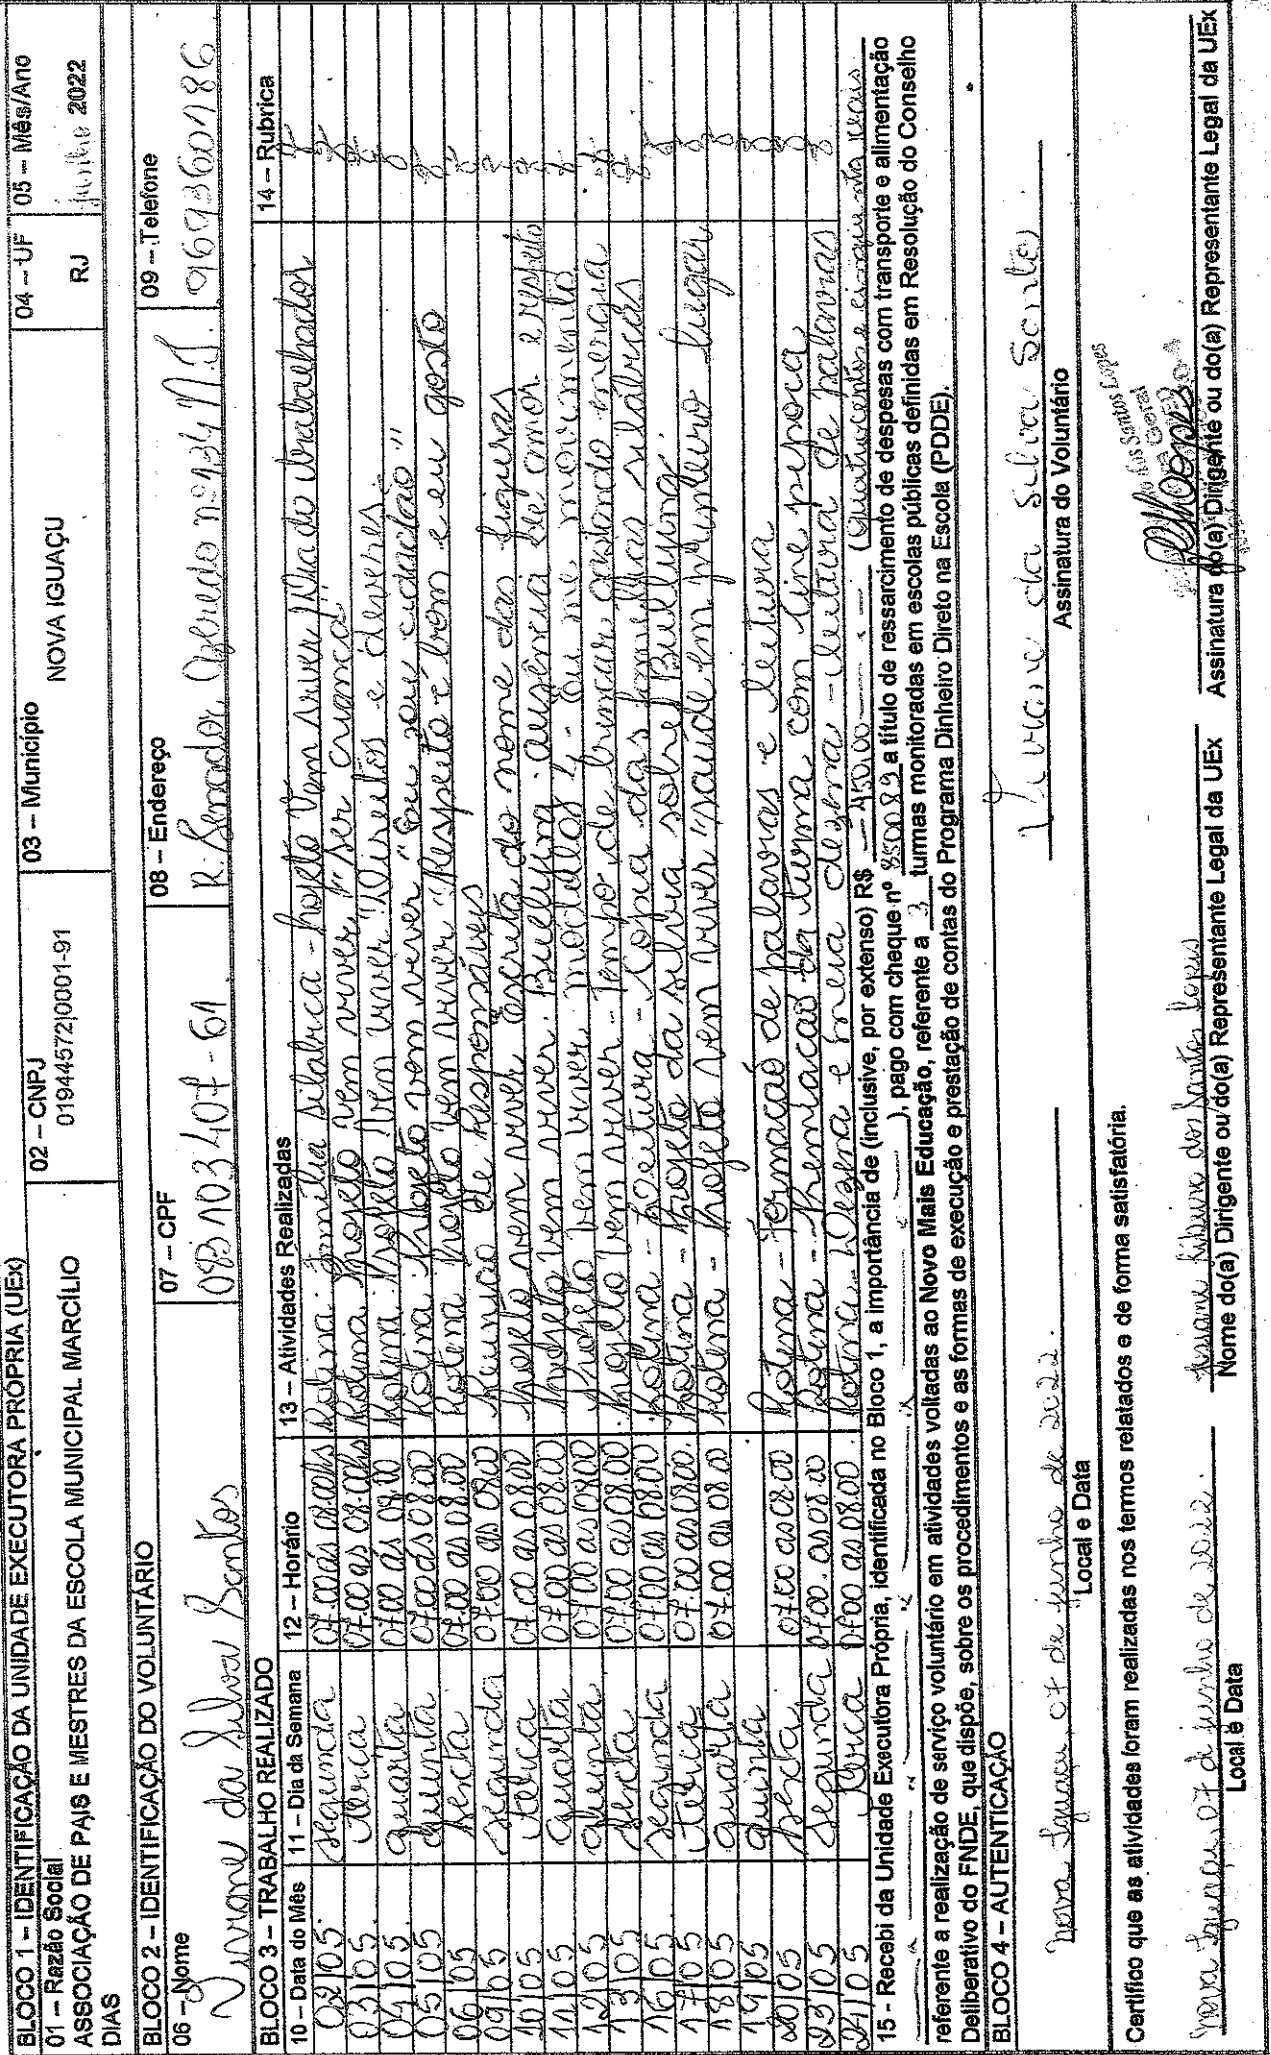 BLOCO 1 – IDENTIFICAÇÃO DA UNIDADE EXECUTORA PRÓPRIA (UEx)
01 – Razão Social
ASSOCIAÇÃO DE PAIS E MESTRES DA ESCOLA MUNICIPAL MARCÍLIO DIAS
02 – CNPJ
01944572|0001-91
03 – Município
NOVA IGUAÇU
04 – UF
RJ
05 – Mês/Ano
junho 2022
BLOCO 2 – IDENTIFICAÇÃO DO VOLUNTÁRIO
06 – Nome
Viviane da Silva Santos
07 – CPF
085 103 407-61
08 – Endereço
R. Senador Azeredo nº 134 N.I.
09 – Telefone
969360186
BLOCO 3 – TRABALHO REALIZADO
10 – Data do Mês 11 – Dia da Semana 12 – Horário 13 – Atividades Realizadas 14 – Rubrica
02/05 segunda 07:00 às 08:00hs Rotina família silábica - projeto Vem viver dia do trabalhador
03/05 terça 07:00 as 08:00hs Rotina Projeto vem viver "ser criança"
04/05 quarta 07:00 às 08:00 Rotina Projeto Vem viver "Direitos e deveres"
05/05 quinta 07:00 as 08:00 Rotina Projeto vem viver "Eu sou cidadão"
06/05 sexta 07:00 as 08:00 Rotina Projeto vem viver "Respeito é bom e eu gosto
09/05 segunda 07:00 as 08:00 Reunião de Responsáveis
10/05 terça 07:00 as 08:00 Projeto vem viver Escrita do nome das figuras
11/05 quarta 07:00 as 08:00 Projeto vem viver. Bullying ausência de amor e respeito
12/05 quinta 07:00 as 08:00 Projeto vem viver módulos 4 - Eu me movimento
13/05 sexta 07:00 as 08:00 Projeto vem viver - Tempo de brincar gastando energia
16/05 segunda 07:00 as 08:00 Rotina - Leitura - Copia das famílias silábicas
17/05 terça 07:00 as 08:00. Rotina - Projeto da silvia sobre Bullying
18/05 quarta 07:00 as 08:00 Rotina - Projeto vem viver "saúde em primeiro lugar
19/05 quinta
20/05 sexta 07:00 as 08:00 Rotina - Formação de palavras e leitura
23/05 segunda 07:00. as 08:00 Rotina - Premiação da turma com cine pipoca
24/05 terça 07:00 as 08:00. Rotina - Dezena e meia dezena - leitura de palavras
15 - Recebi da Unidade Executora Própria, identificada no Bloco 1, a importância de (inclusive, por extenso) R$ 450,00 (Quatrocentos e cinquenta reais
), pago com cheque nº 850089 a título de ressarcimento de despesas com transporte e alimentação
referente a realização de serviço voluntário em atividades voltadas ao Novo Mais Educação, referente a 3 turmas monitoradas em escolas públicas definidas em Resolução do Conselho
Deliberativo do FNDE, que dispõe, sobre os procedimentos e as formas de execução e prestação de contas do Programa Dinheiro Direto na Escola (PDDE).
BLOCO 4 – AUTENTICAÇÃO
Nova Iguaçu, 07 de junho de 2022.
Local e Data
Viviane da Silva Santos
Assinatura do Voluntário
Certifico que as atividades foram realizadas nos termos relatados e de forma satisfatória.
Nova Iguaçu, 07 de junho de 2022.
Local e Data
Ribeiro dos Santos Lopes
Nome do(a) Dirigente ou do(a) Representante Legal da UEx
dos Santos Lopes
Geral
Lopes
Assinatura do(a) Dirigente ou do(a) Representante Legal da UEx